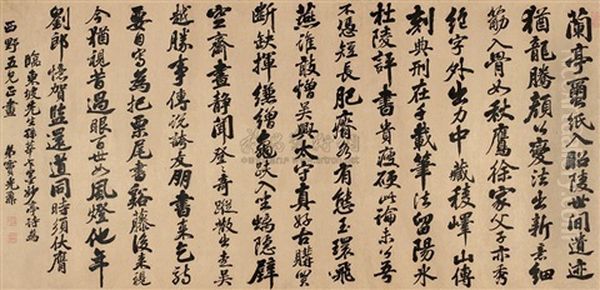 蘭亭蠒紙入昭陵世間遺迹
猶龍騰顏公變法出新意細
筋入骨如秋鷹徐家父子亦秀
絕字外出力中藏稜嶧山傳
刻典刑在千載筆法留陽冰
杜陵評書貴瘦硬此論未公吾
不憑短長肥瘠各有態玉環飛
燕誰敢憎吳興太守真好古購買
斷缺揮縑繒龜趺入坐螭隱壁
空齋晝靜聞登登奇蹤散出走吳
越勝事傳說誇友朋書來乞詩
要自寫為把栗尾書谿藤後來視
今猶視昔過眼百世如風燈他年
劉郎憶賀監還道同時須伏膺
臨東坡先生孫莘老求墨妙亭詩為
西野五兄正 弟竇光鼐